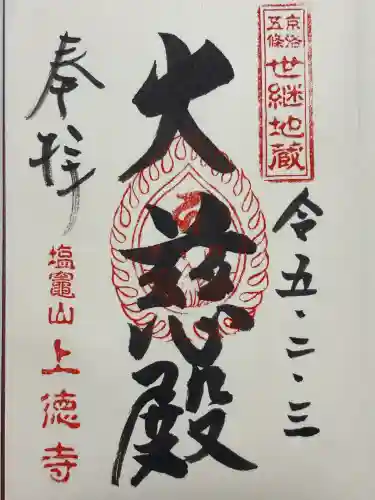 京洛五條
世継地蔵
令五・二・三
大慈殿
奉拝
塩竈山上徳寺